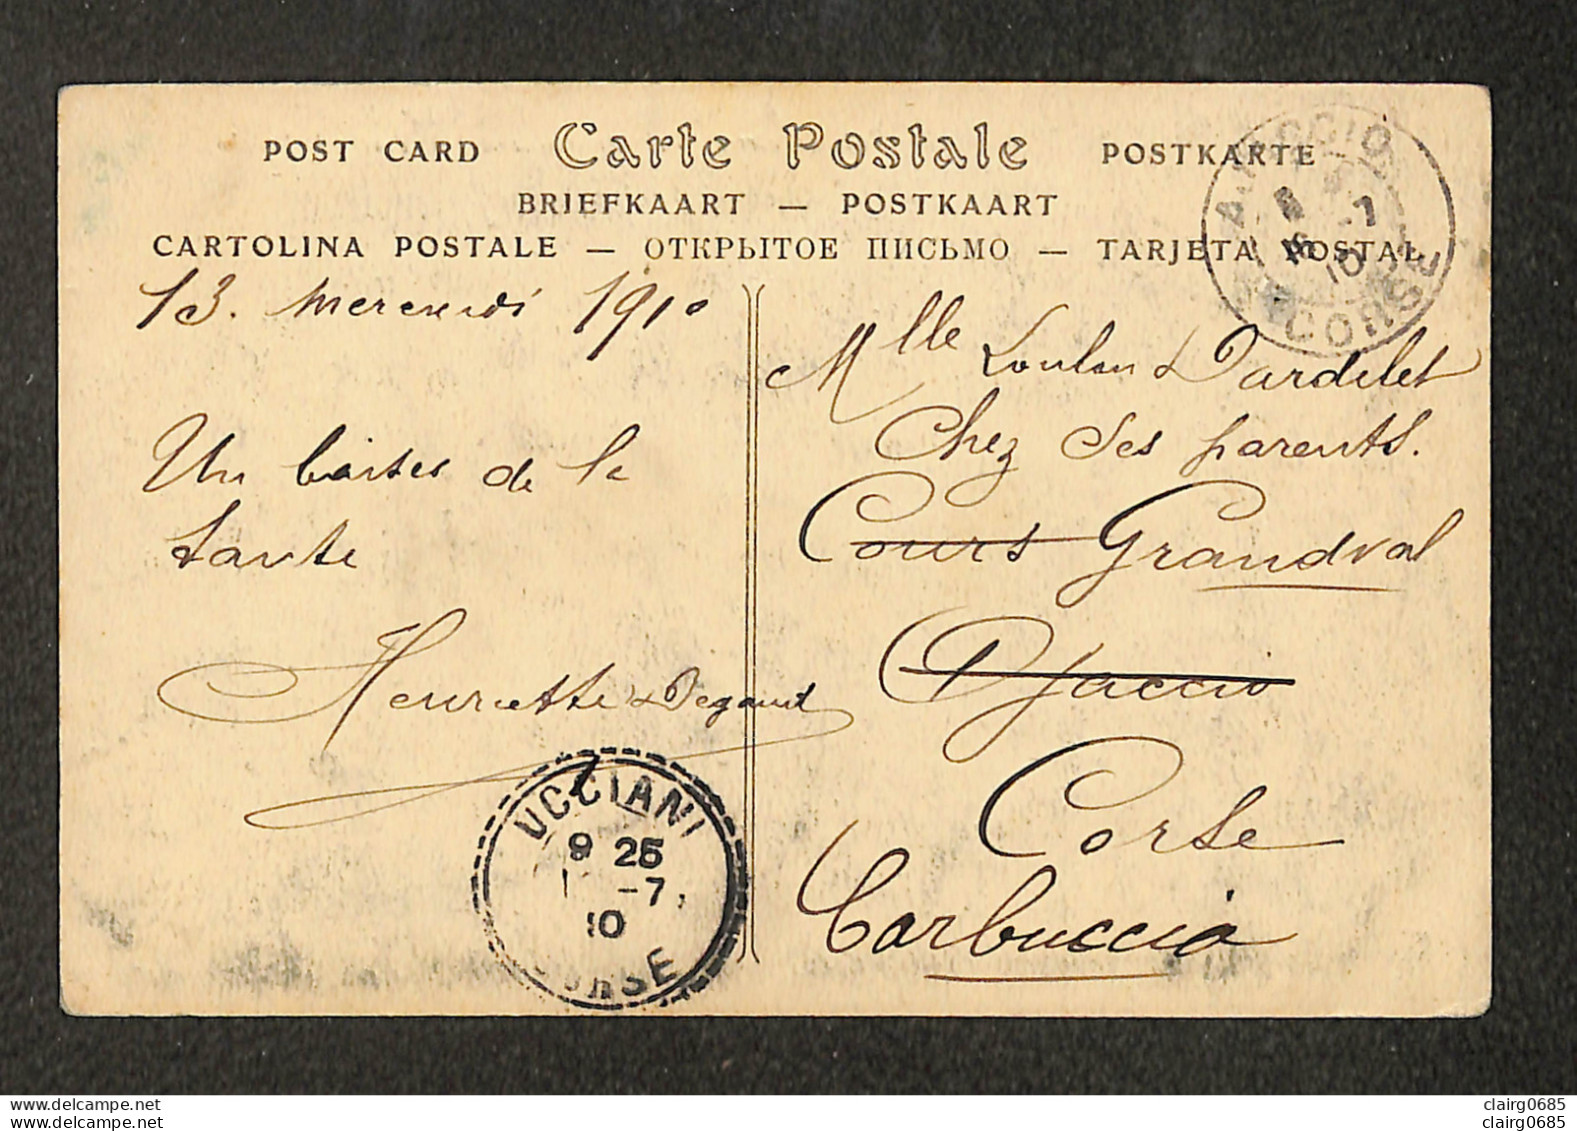 POST CARD Carte Postale POSTKARTE
BRIEFKAART — POSTKAART
CARTOLINA POSTALE — ОТКРЫТОЕ ПИСЬМО — TARJETA POSTAL
AJACCIO
8
15 -7
10
CORSE
13. Mercredi 1910
Un baiser de la
tante
Henriette Degaud
Mlle Loulou Dardelet
Chez Ses parents.
Cours Grandval
Ajaccio
Corse
Carbuccia
UCCIANI
9 25
1 -7
10
CORSE
delcampe.net
clairg0685
clairg0685